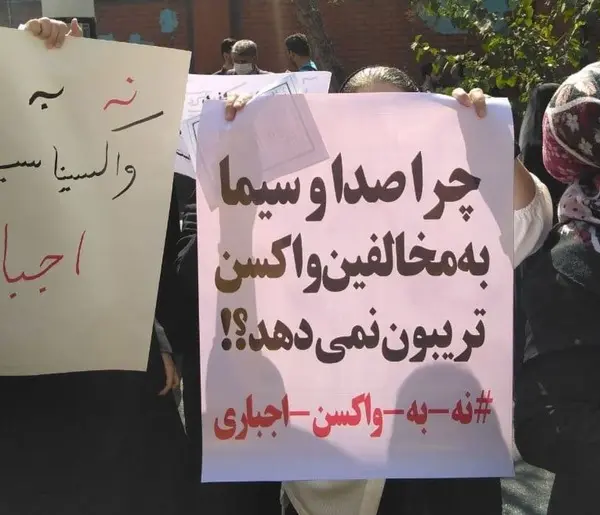 چرا صدا و سیما
به مخالفین واکسن
تریبون نمی‌دهد؟!
#نه-به-واکسن-اجباری
نه به
واکسیناسی
اجبا